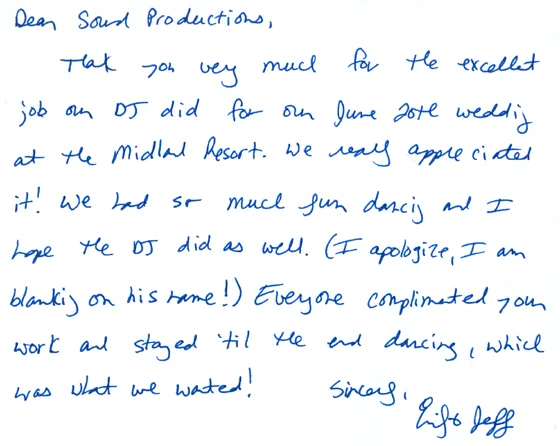 Dear Sound Productions,
Thank you very much for the excellent
job our DJ did for our June 20th wedding
at the Midland Resort. We really appreciated
it! We had so much fun dancing and I
hope the DJ did as well. (I apologize, I am
blanking on his name!) Everyone complimented your
work and stayed 'til the end dancing, which
was what we wanted! Sincerely,
Jeff